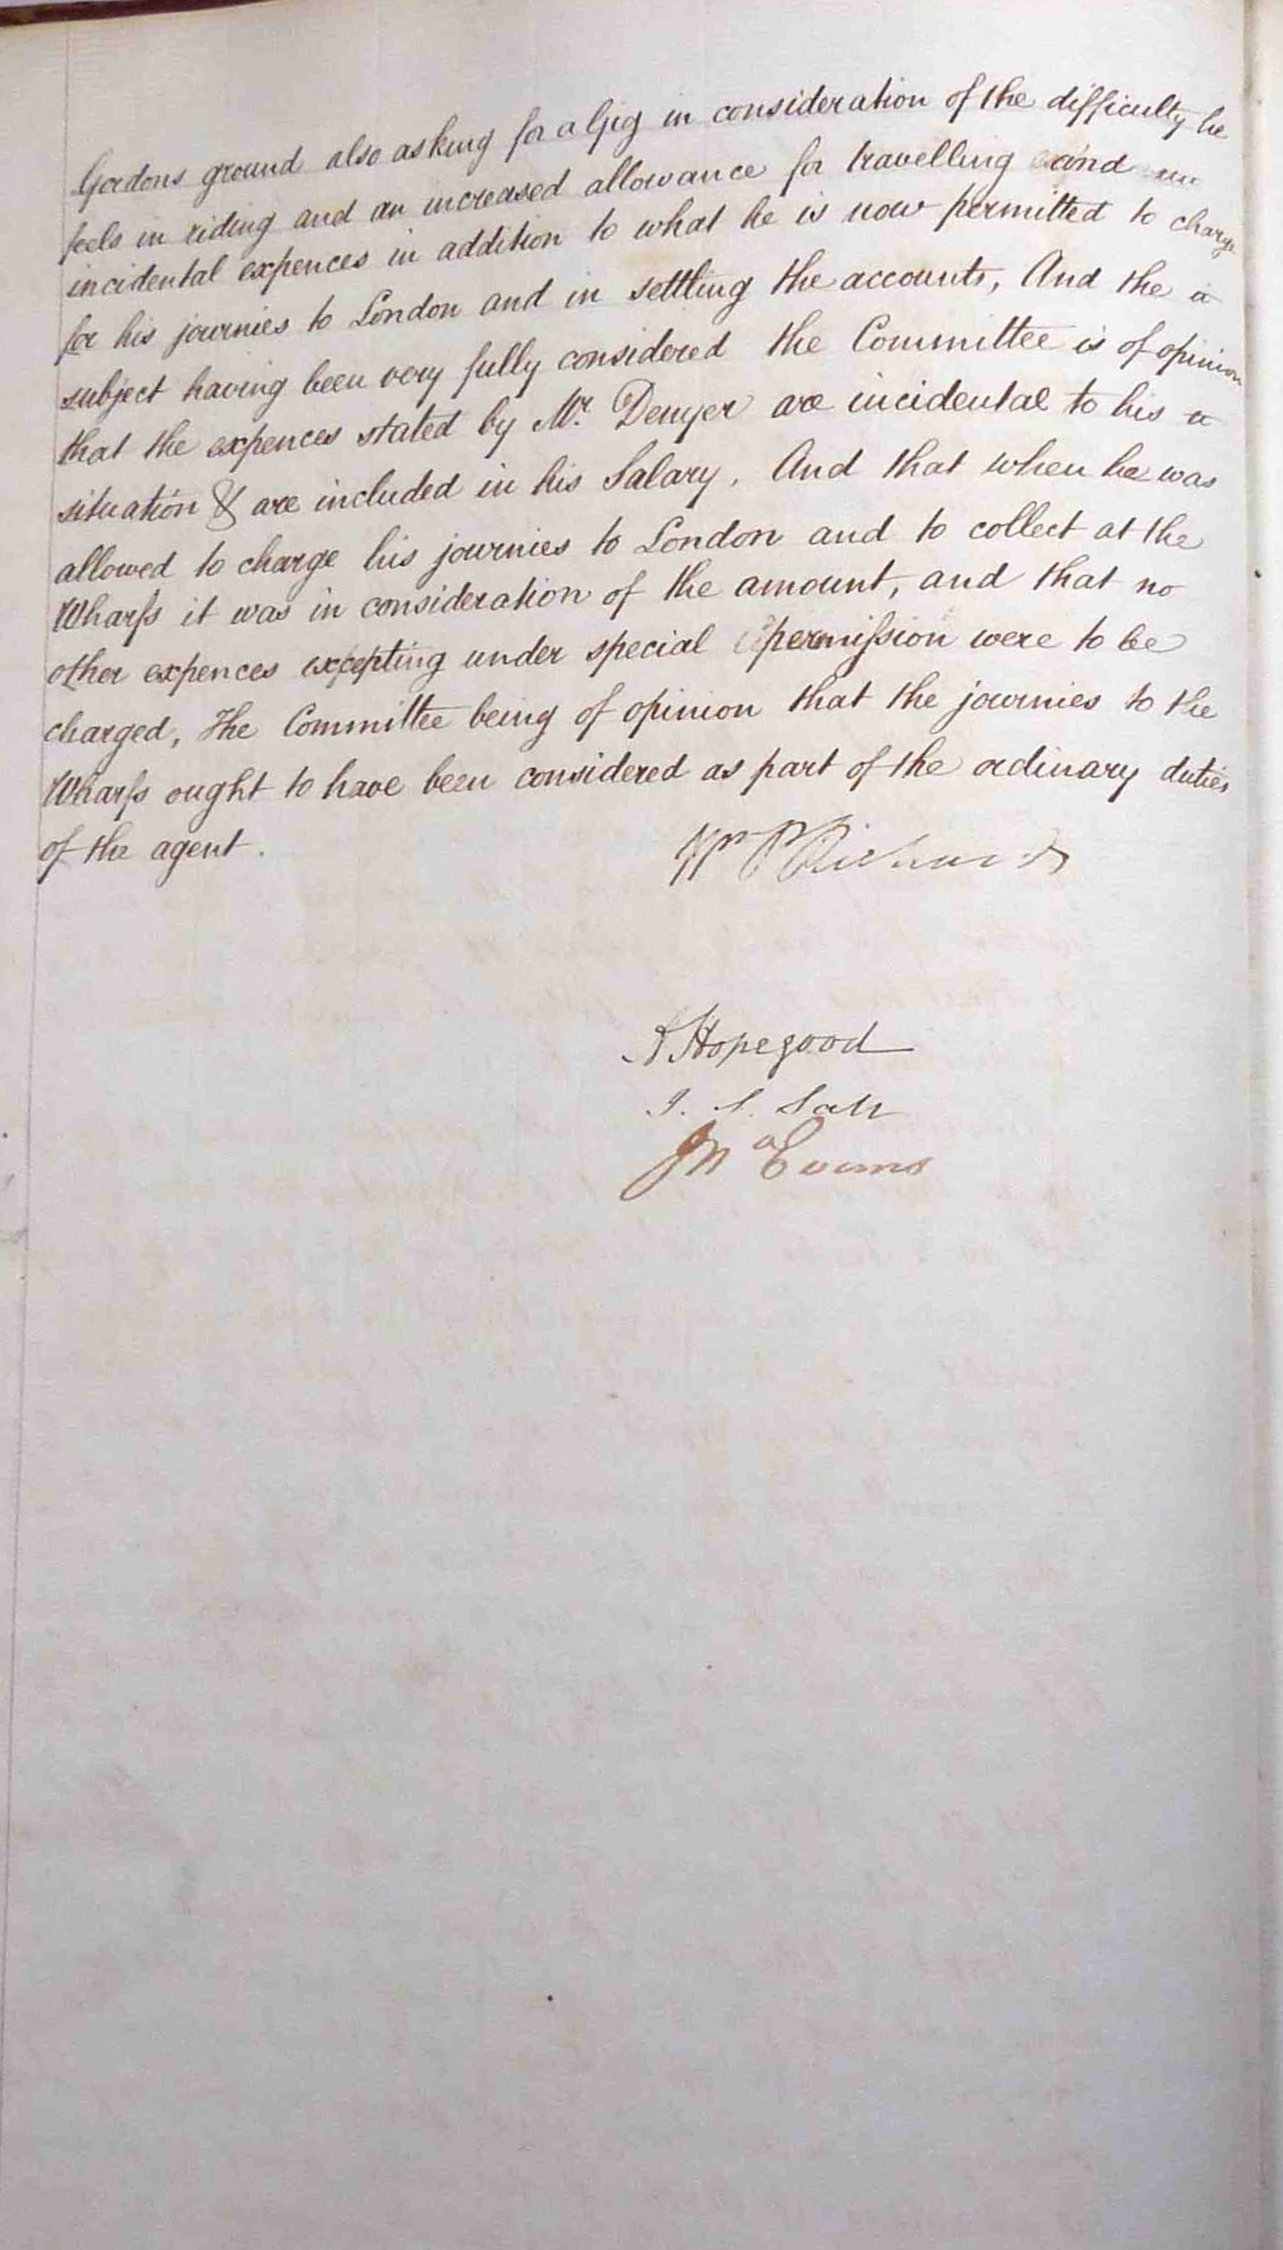 Gordons ground also asking for a Gig in consideration of the difficulty he
feels in riding and an increased allowance for travelling and
incidental expences in addition to what he is now permitted to charge
for his journies to London and in settling the accounts, And the
subject having been very fully considered the Committee is of opinion
that the expences stated by Mr. Denyer are incidental to his
situation & are included in his Salary. And that when he was
allowed to charge his journies to London and to collect at the
Wharfs it was in consideration of the amount, and that no
other expences excepting under special permission were to be
charged, The Committee being of opinion that the journies to the
Wharfs ought to have been considered as part of the ordinary duties
of the agent.
Wm P Richards
Hopegood
J. S. Salt
Evans